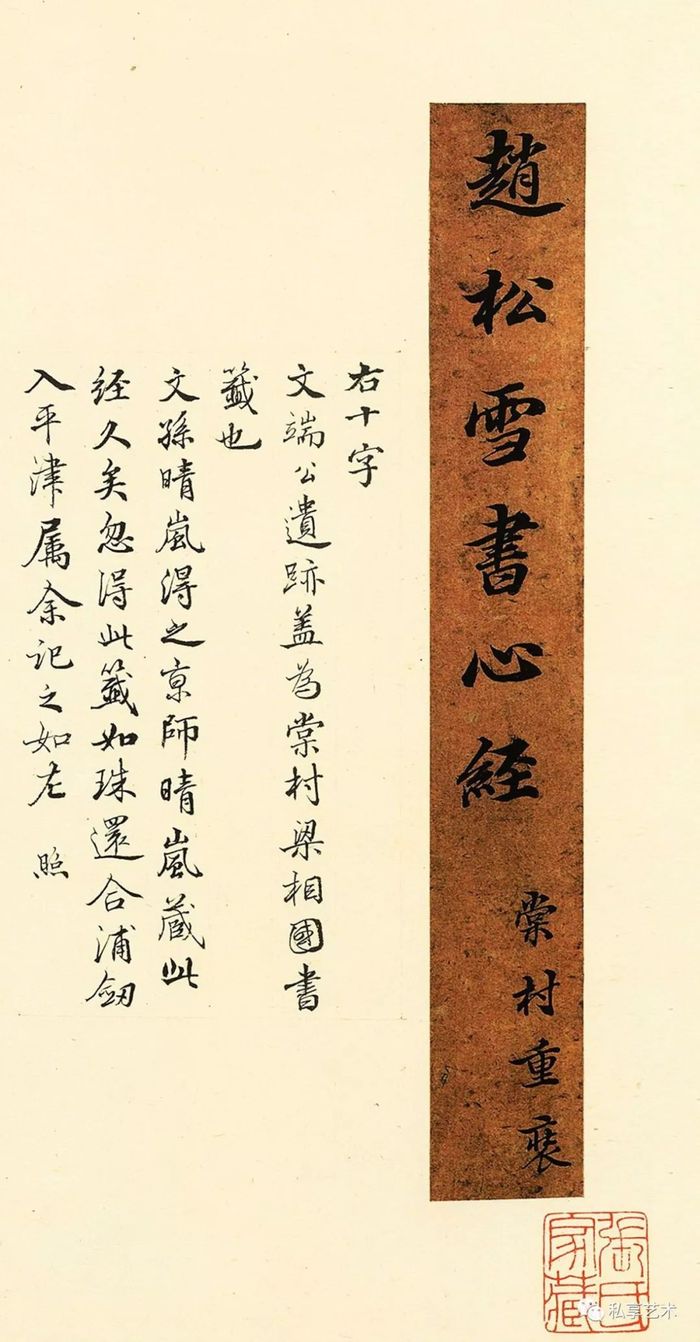 趙松雪書心経
棠村重裝
右十字
文端公遺跡盖為棠村梁相國書
籤也
文孫晴嵐得之京師晴嵐蔵此
経久矣忽得此籤如珠還合浦劔
入平津属余記之如左 照
張氏家藏
私享艺术